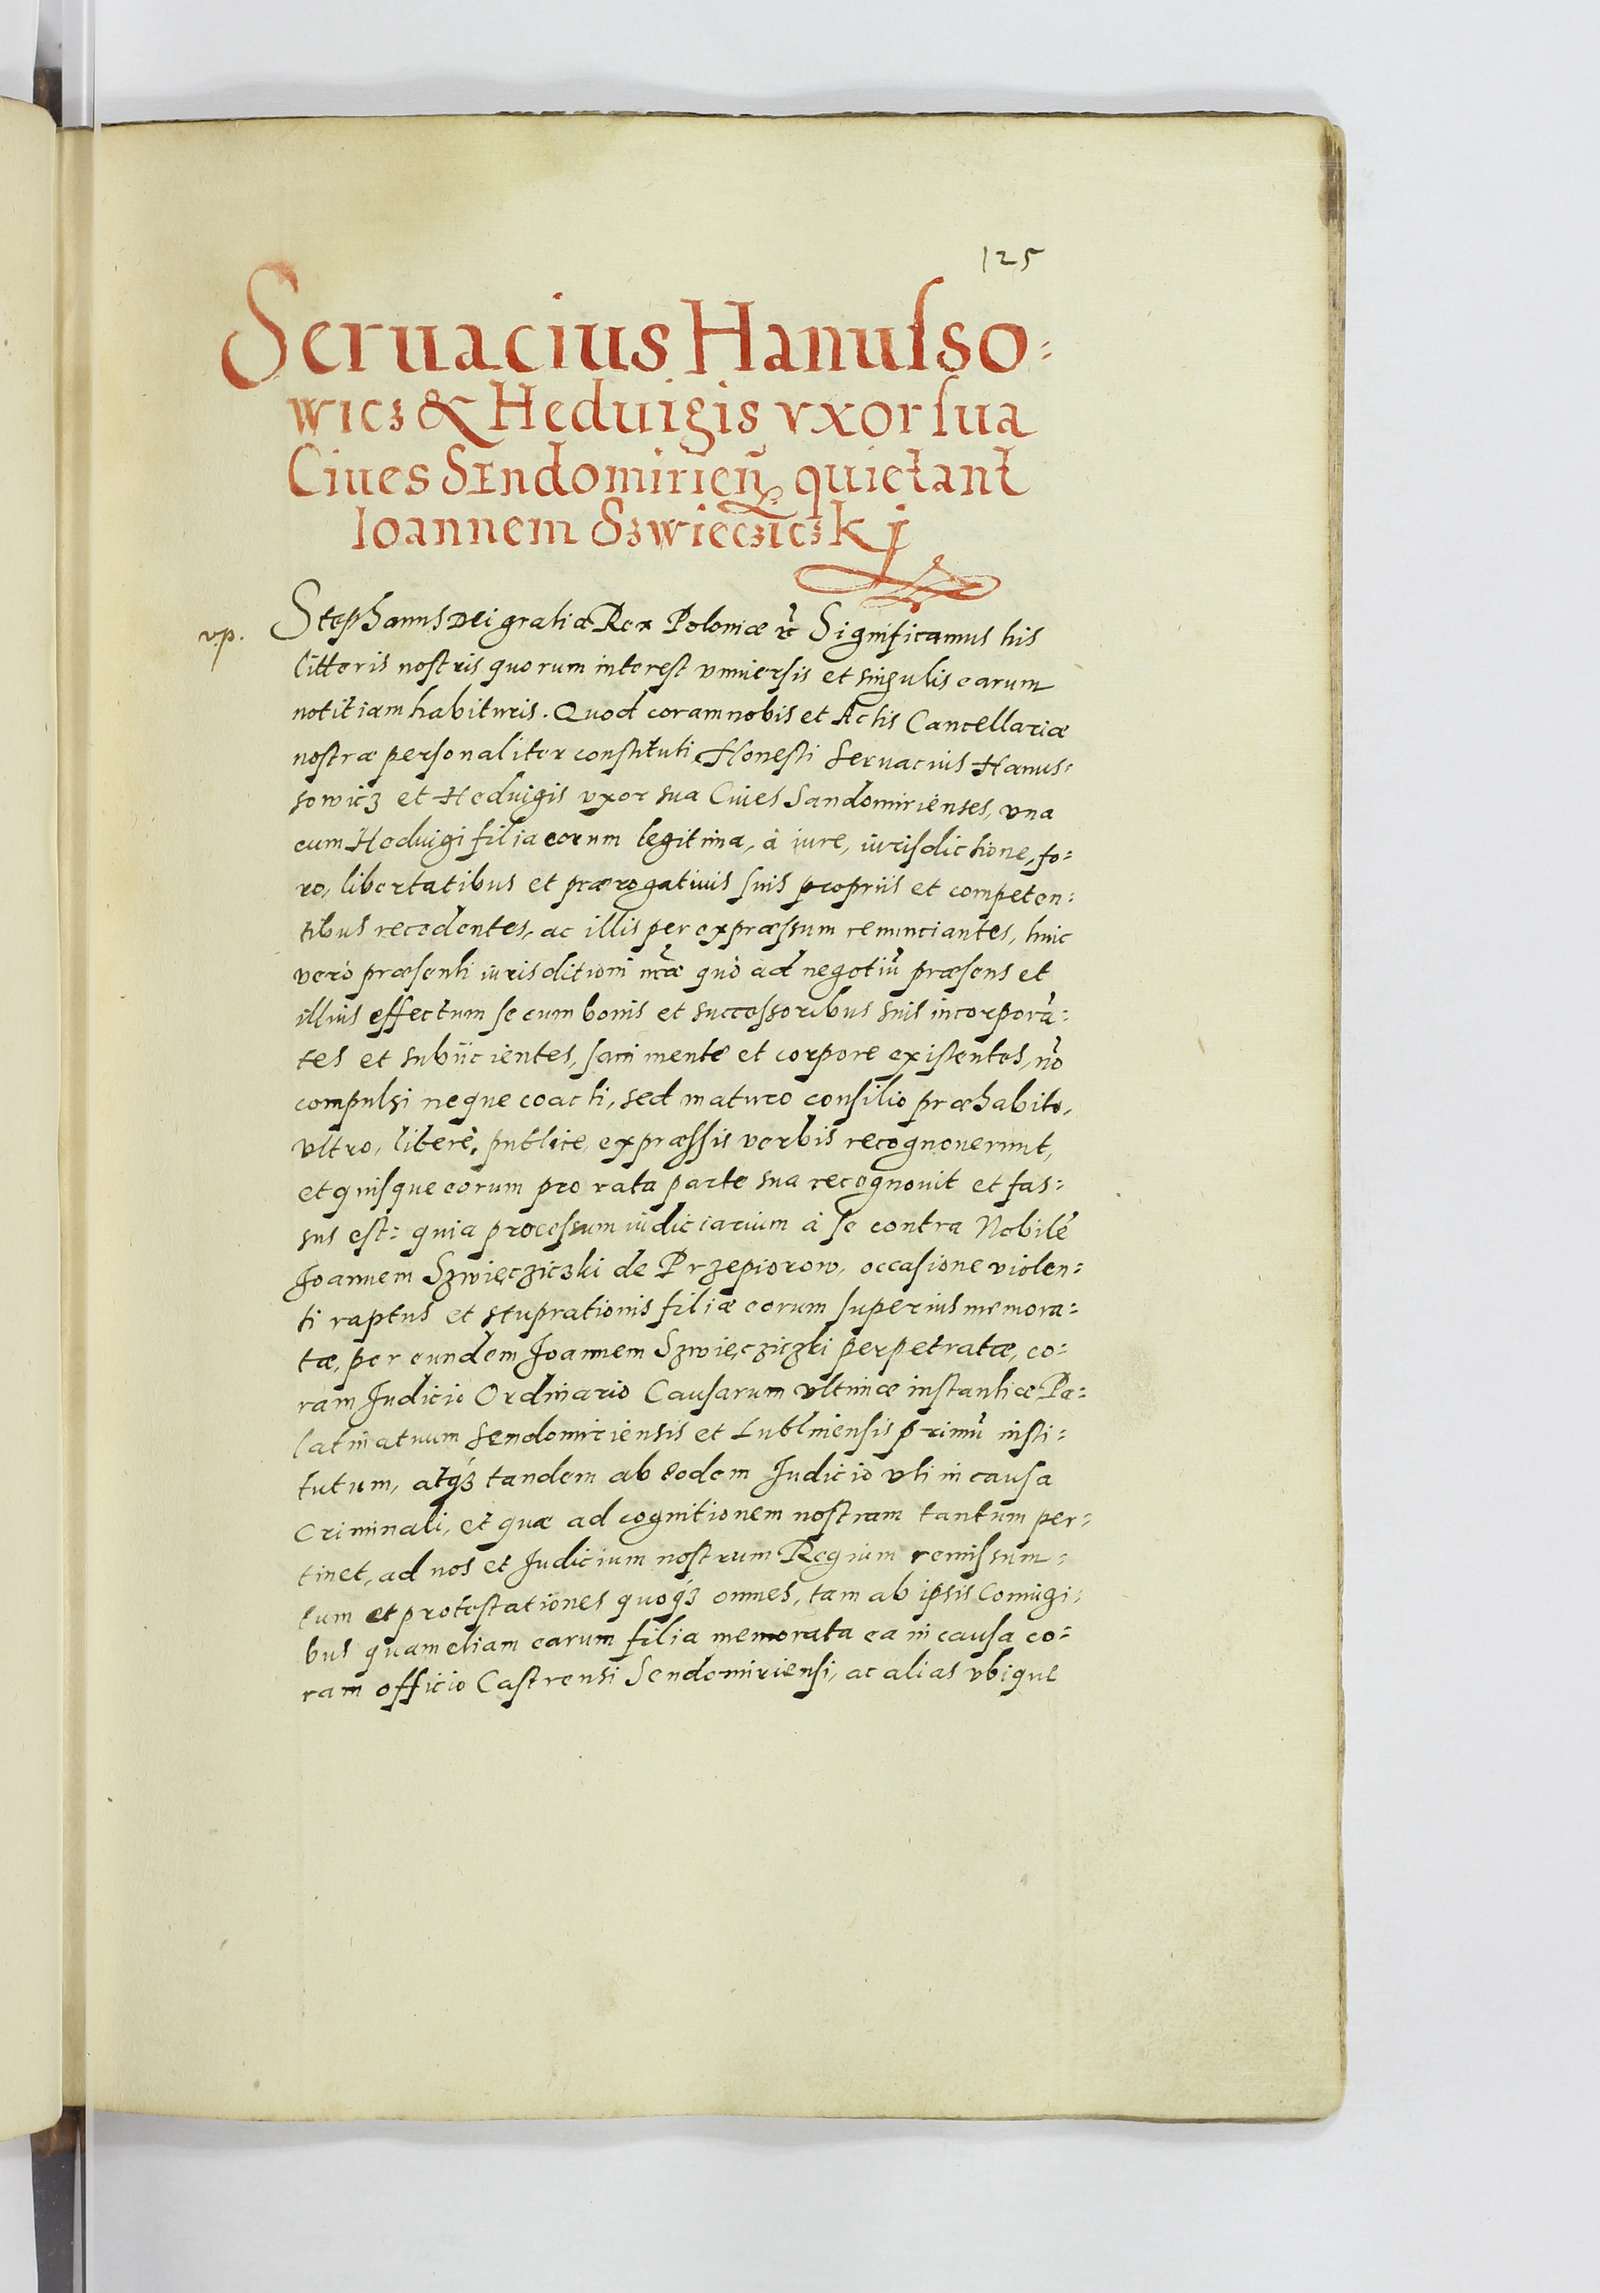 125
Seruacius Hanusso=
wicz & Heduigis vxor sua
Ciues SEndomirień quietant
Ioannem Szwiecziczkj
v.p. Stephanus Dei gratia Rex Poloniæ ꝛc̃ Significamus his
litteris nostris quorum interest vniuersis et singulis earum
notitiam habituris. Quod coram nobis et Actis Cancellariæ
nostræ personaliter constituti Honesti Seruacius Hanus=
sowicz et Heduigis vxor sua Ciues Sandomirienses, vna
cum Heduigi filia eorum legitima, à iure, iurisdictione, fo=
ro, libertatibus et prærogatiuis suis propriis et competen=
tibus recedentes, ac illis per expræssum renunciantes, huic
verò præsenti iurisditioni nr̃æ quò ad negotiũ præsens et
illius effectum se cum bonis et successoribus suis incorporã=
tes et subiicientes, sani mente et corpore existentes, nõ
compulsi neque coacti, sed maturo consilio præhabito,
vltro, liberè, publice, expræssis verbis recognouerunt,
et quisque eorum pro rata parte sua recognouit et fas=
sus est: quia processum iudiciarium à se contra Nobilẽ
Joannem Szwięcziczki de Przepiorow, occasione violen=
ti raptus et stuprationis filiæ eorum superius memora=
tæ, per eundem Joannem Szwięcziczki perpetratæ, co=
ram Judicio Ordinario Causarum vltimæ instantiæ Pa=
latinatuum Sendomiriensis et Lublinensis primũ insti=
tutum, atqꝫ tandem ab eodem Judicio vti in causa
Criminali, et quæ ad cognitionem nostram tantum per=
tinet, ad nos et Judicium nostrum Regium remissum=
tum et protestationes quoqꝫ omnes, tam ab ipsis Coniugi=
bus quam etiam earum filia memorata ea in causa co=
ram officio Castrensi Sendomiriensi, ac alias vbique